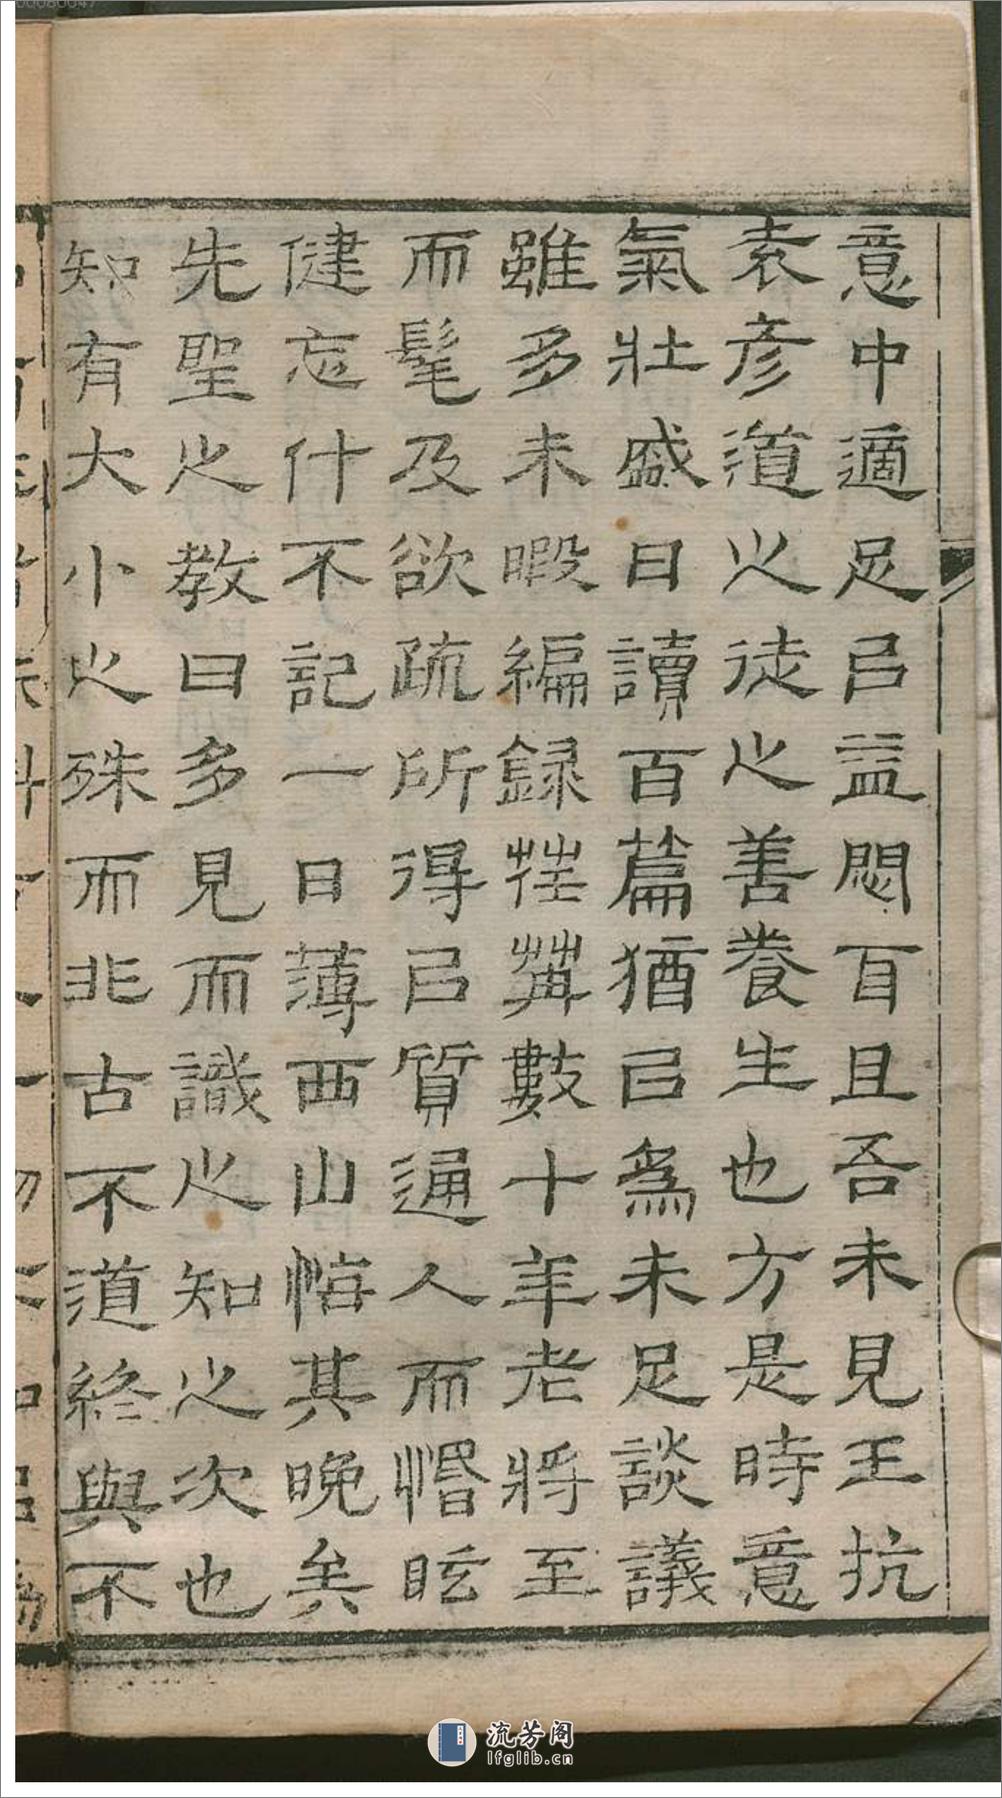 意中適足㠯益悶百且吾未見王抗
袁彦道之徒之善養生也方是時意
氣壯盛日讀百篇猶㠯為未足談議
雖多未暇編録荏苒數十年老將至
而髦及欲疏所得㠯質通人而惛眩
健忘什不記一日薄西山悟其晚矣
先聖之教曰多見而識之知之次也
知有大小之殊而非古不道終與不
流芳阁
lfglib.cn